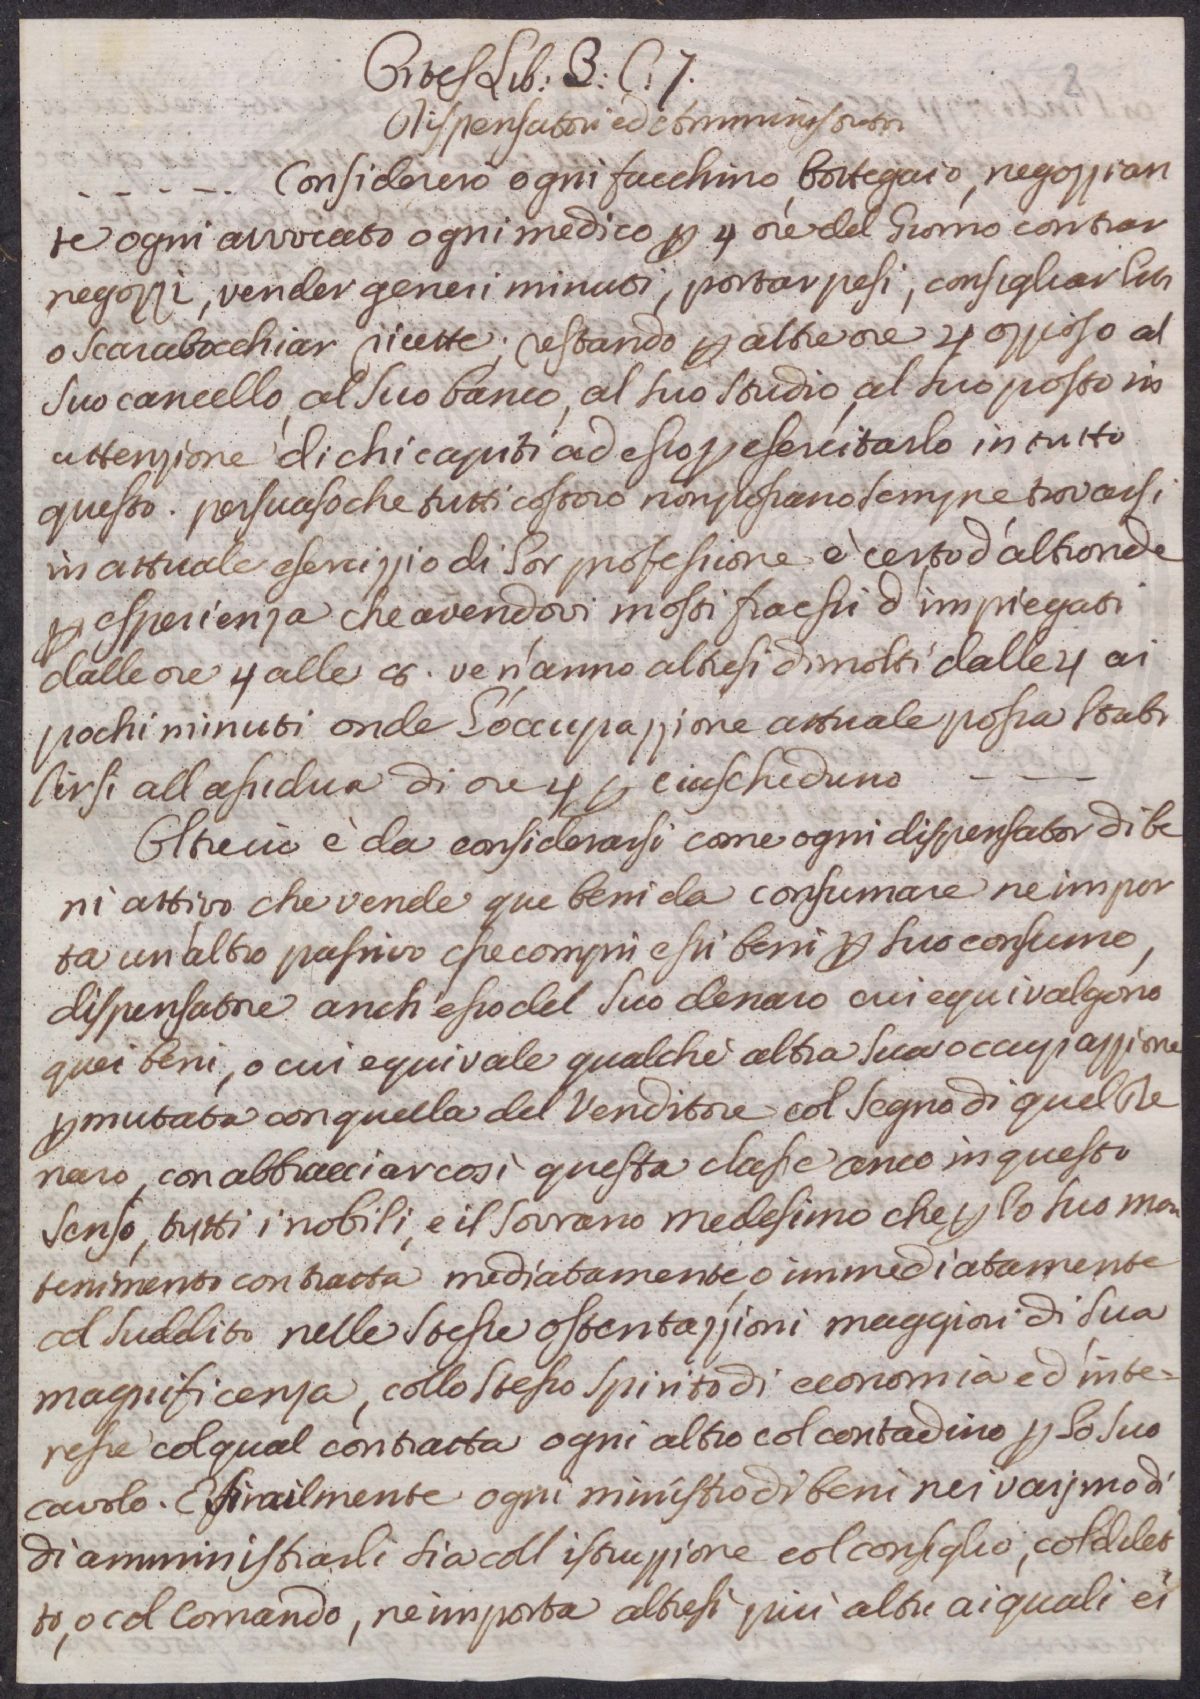 Ortes Lib: 3: C: 7.
8
Dispensatori ed Amministratori
- - - - - Considererò ogni facchino, bottegaio, negozzian
te ogni avvocato ogni medico p 4 ore del Giorno contrar
negozzi, vender generi minuti, portar pesi, consigliar liti
o scarabocchiar ricette; restando p altre ore 4 ozzioso al
suo cancello, al suo banco, al suo studio, al suo posto in
attenzione di chi capiti ad esso p esercitarlo in tutto
questo. persuaso che tutti costoro non possano sempre trovarsi
in attuale esercizzio di lor professione è certo d'altronde
p esperienza che avendovi molti fra essi d'impiegati
dalle ore 4 alle 8. ve n'anno altresi di molti dalle 4 ai
pochi minuti onde l'occupazzione attuale possa stabi
lirsi all assidua di ore 4 p ciascheduno - - -
Oltreciò è da considerarsi come ogni dispensator di be
ni attivo che vende que beni da consumare ne impor
ta un'altro passivo che compri essi beni p suo consumo,
dispensatore anch'esso del suo denaro cui equivalgono
quei beni, o cui equivale qualche altra sua occupazzione
pmutata con quella del Venditore col segno di quel De
naro, con abbracciar così questa classe anco in questo
senso, tutti i nobili, e il sovrano medesimo che p lo suo man
tenimento contratta mediatamente, o immediatamente
col suddito nelle stesse ostentazzioni maggiori di sua
magnificenza, collo stesso spirito di economia ed inte=
resse col qual contratta ogni altro col contadino p lo suo
cavolo. E similmente ogni ministro di beni nei varj modi
di amministrarli sia coll istruzzione col consiglio, col dilet
to, o col Comando, ne importa altresì più altri ai quali ei